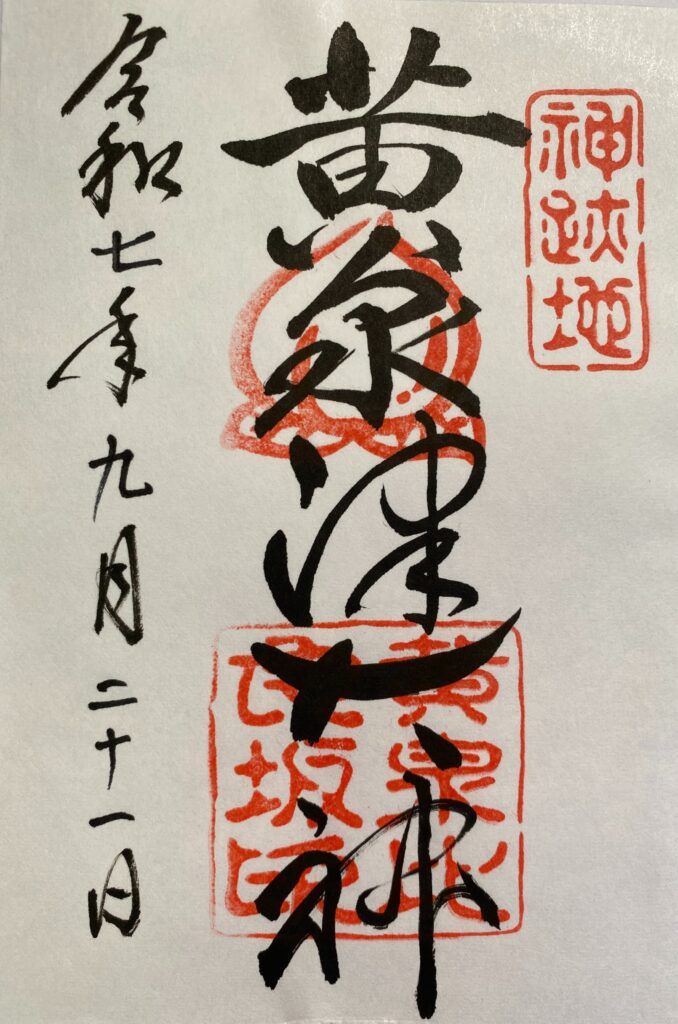 神跡地
黄泉津大神
黄泉比
良坂印
令和七年九月二十一日